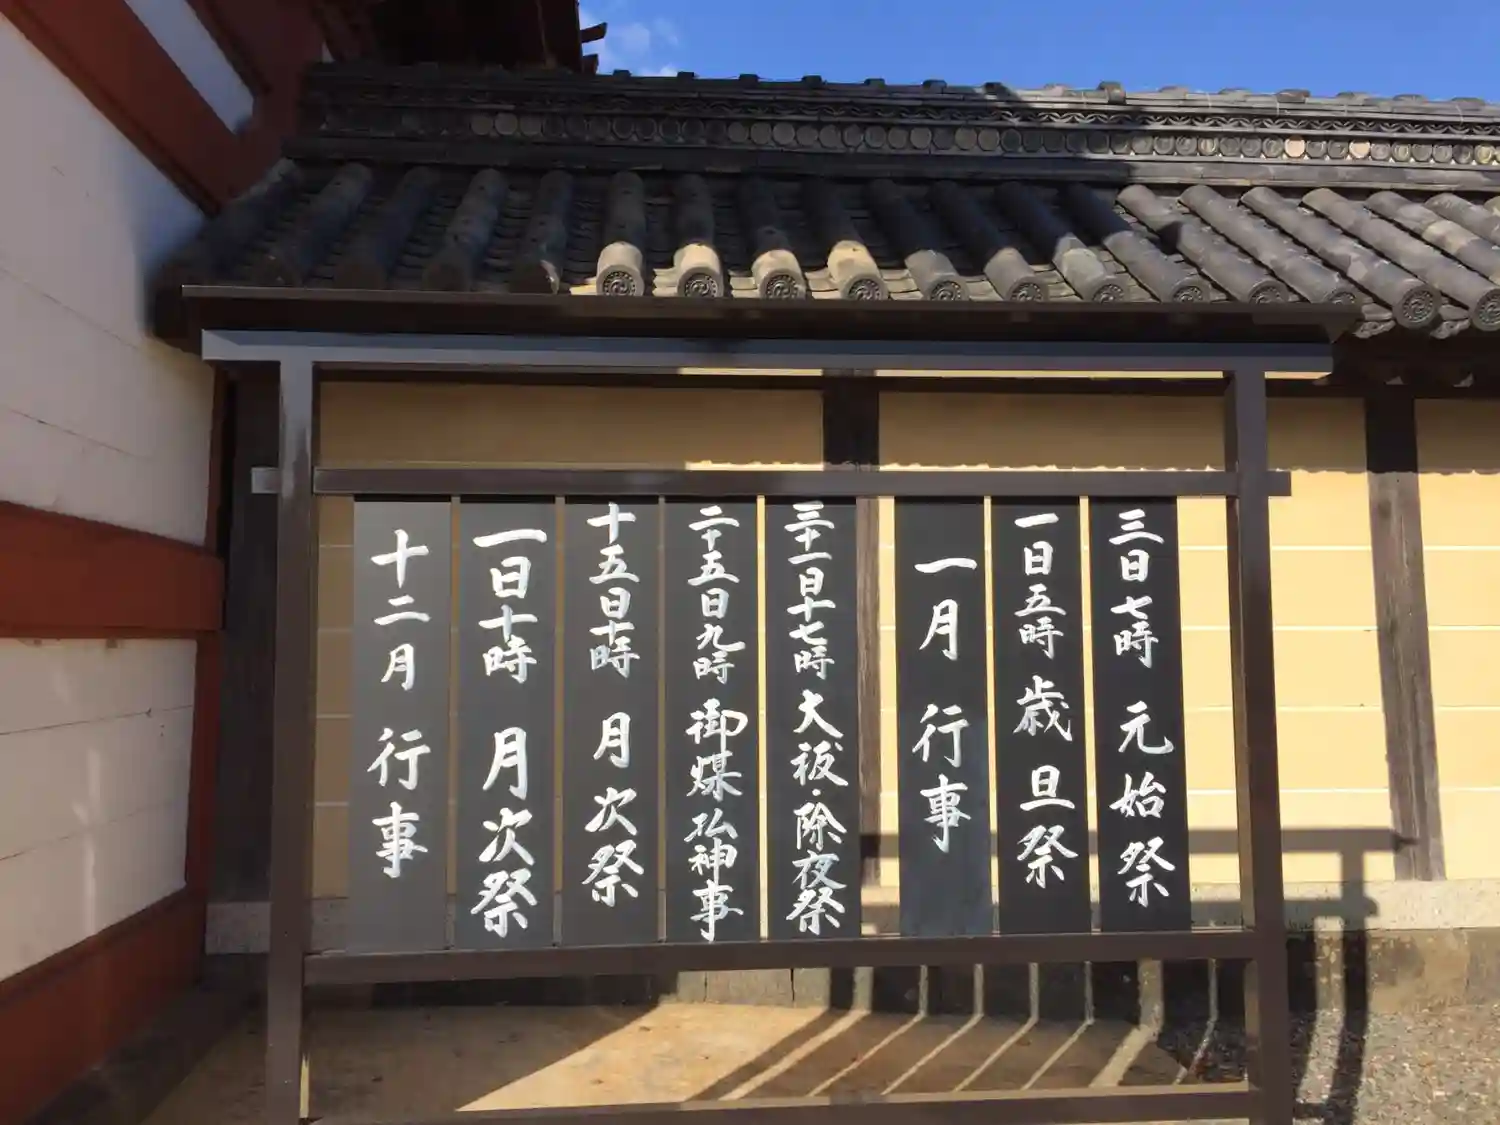 十二月 行事
一日十時 月次祭
十五日十時 月次祭
二十五日九時 御煤払神事
三十一日十七時 大祓・除夜祭
一月 行事
一日五時 歳旦祭
三日七時 元始祭